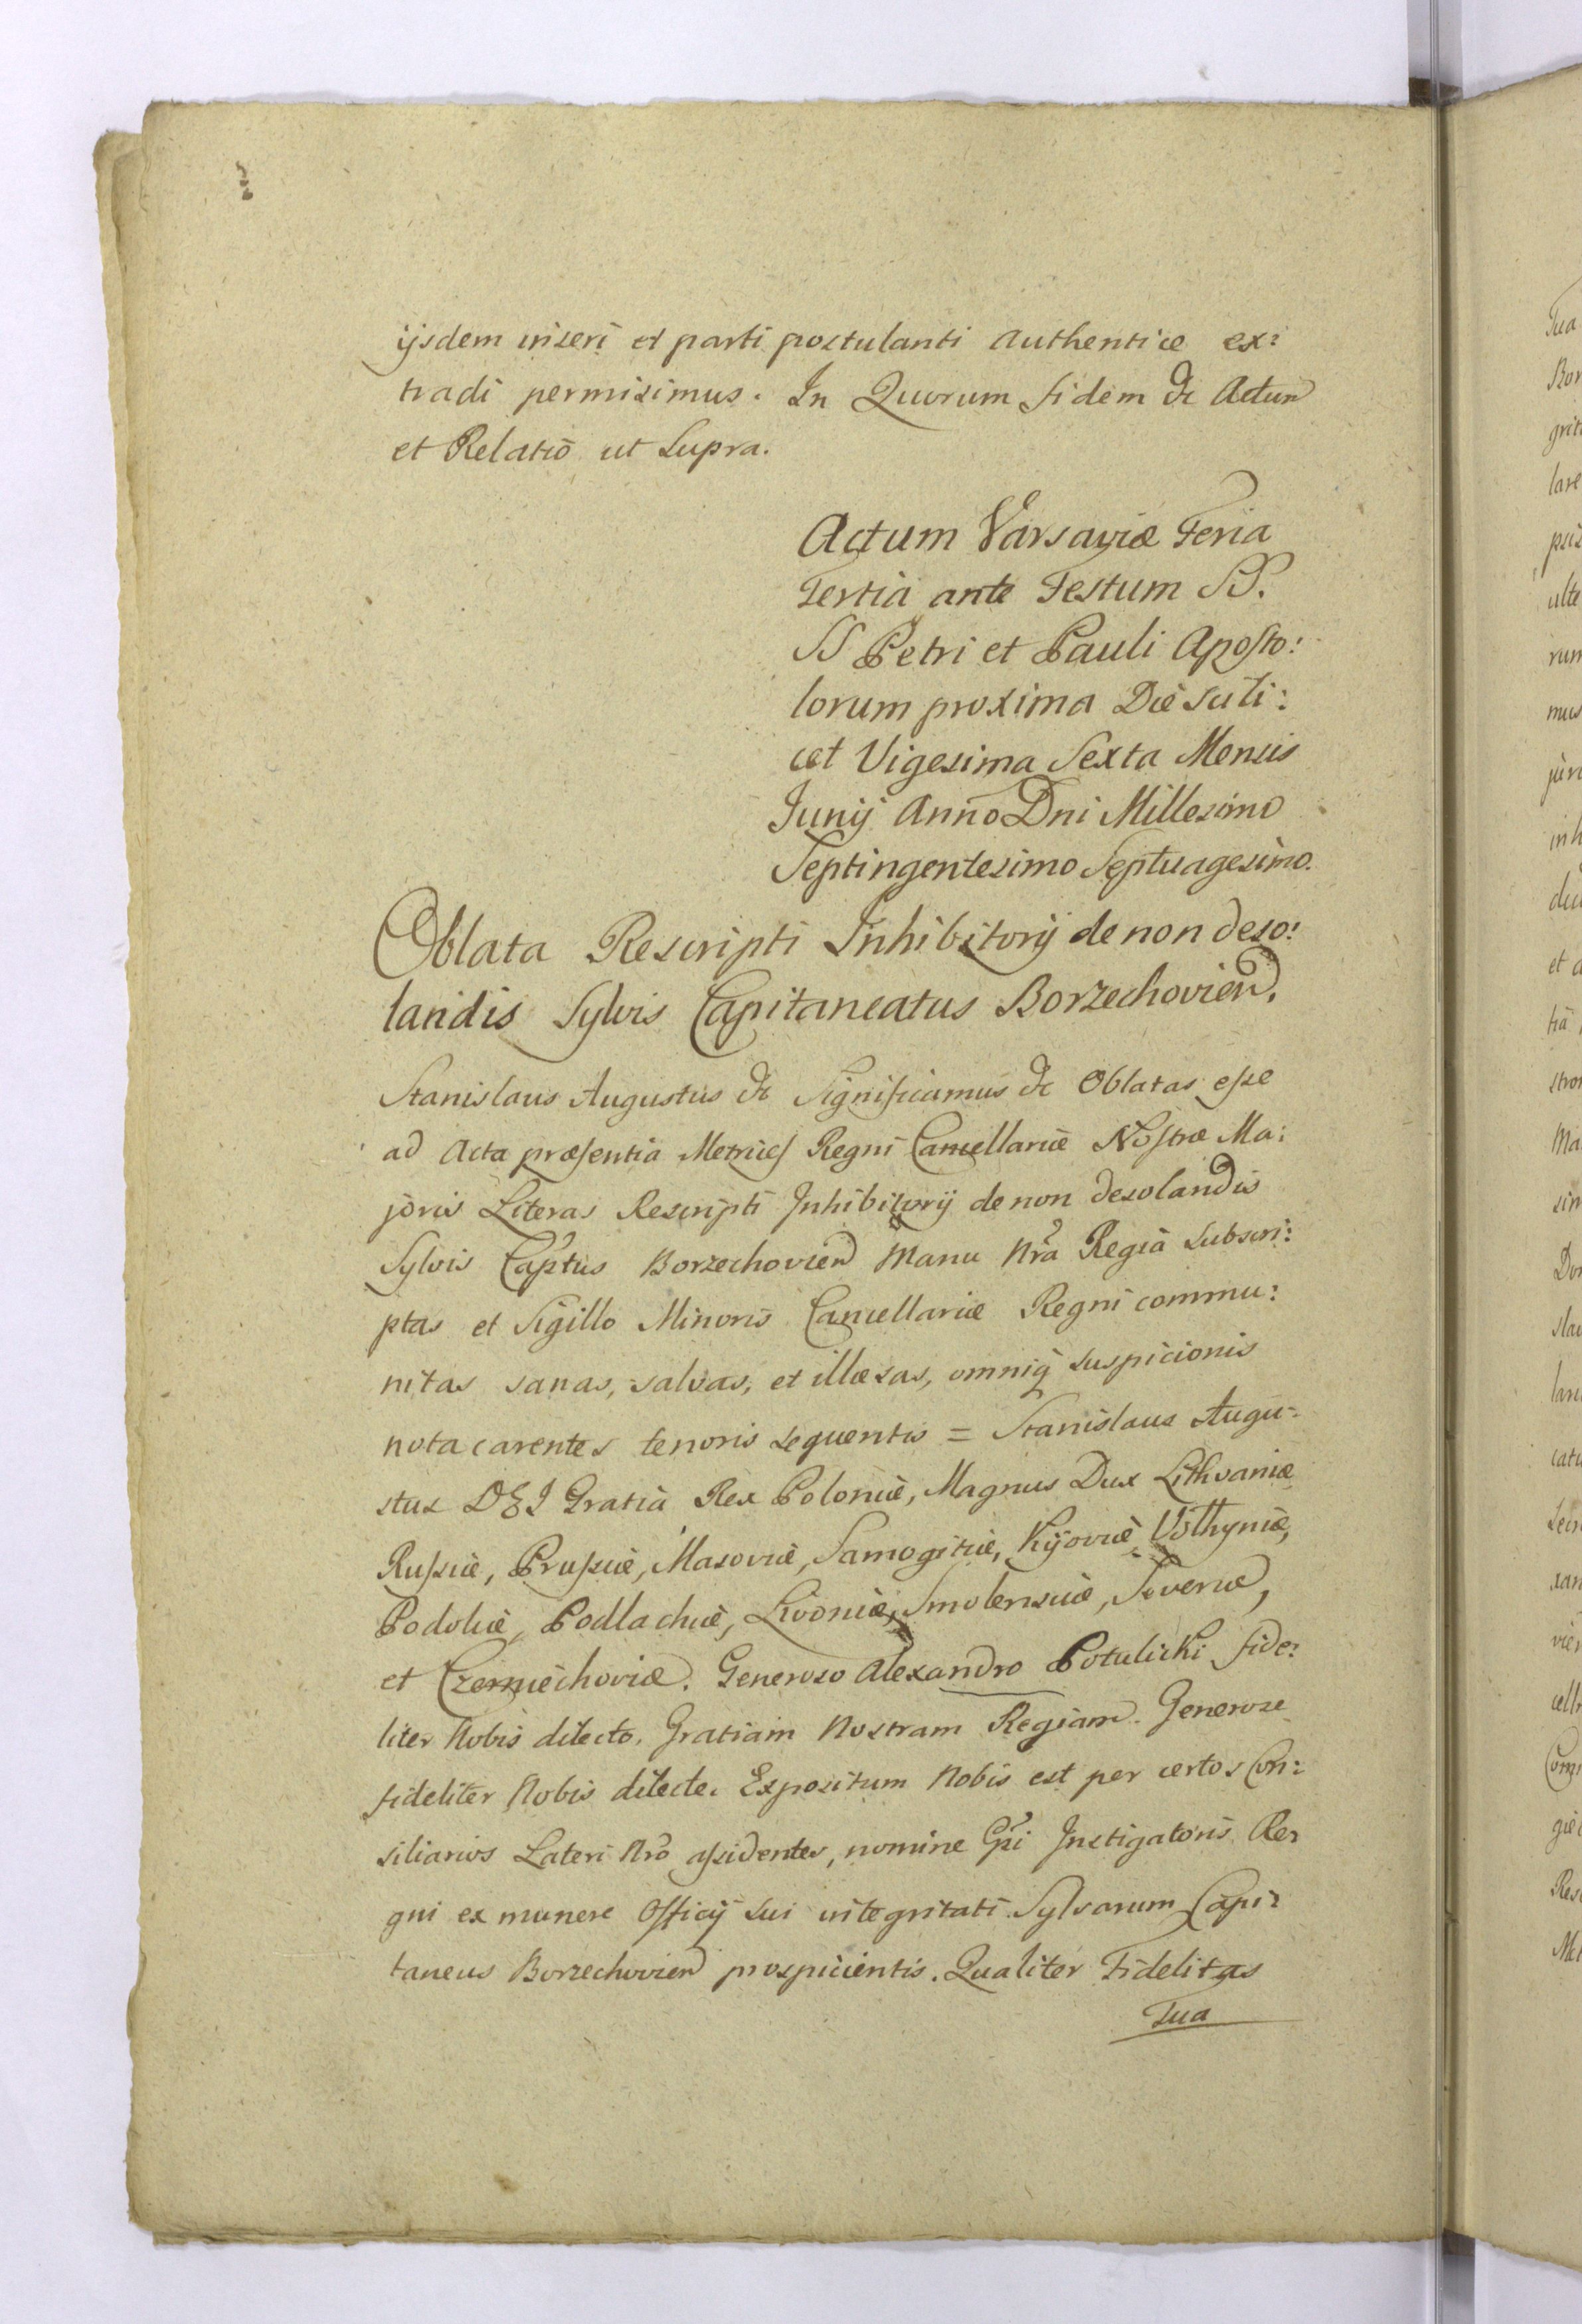 ijsdem inseri et parti postulanti authentice ex:
tradi permisimus. In Quorum fidem &c Actum
et Relatio ut Supra.
Actum Varsaviæ Feria
Tertia ante Festum SS.
SS Petri et Pauli Aposto:
lorum proxima Die scili:
cet Vigesima Sexta Mensis
Junij Anno Dni Millesimo
Septingentesimo Septuagesimo.
Oblata Rescripti Inhibitorij de non deso:
landis Sylvis Capitaneatus Borzechovien.
Stanislaus Augustus &c Significamus &c Oblatas esse
ad Acta præsentia Metrices Regni Cancellariæ Nostræ Ma:
joris Literas Rescripti Inhibitorij de non desolandis
Sylvis Captus Borzechovien Manu Nra Regia subscri:
ptas et Sigillo Minoris Cancellariæ Regni commu:
nitas sanas, salvas, et illæsas, omniq suspicionis
nota carentes tenoris sequentis = Stanislaus Augu:
stus DEI Gratia Rex Poloniæ, Magnus Dux Lithvaniæ
Russiæ, Prussiæ, Masoviæ, Samogitiæ, Kijoviæ, Volhyniæ,
Podoliæ, Podlachiæ, Livoniæ, Smolensciæ, Severiæ,
et Czerniechoviæ. Generoso Alexandro Potulicki fide:
liter Nobis dilecto. Gratiam Nostram Regiam. Generose
fideliter Nobis dilecte. Expositum Nobis est per certos Con:
siliarios Lateri Nro assidentes, nomine Gsi Instigatoris Re:
gni ex munere Officij sui integritati Sylvarum Capi:
taneus Borzechovien prospicientis. Qualiter Fidelitas
Tua